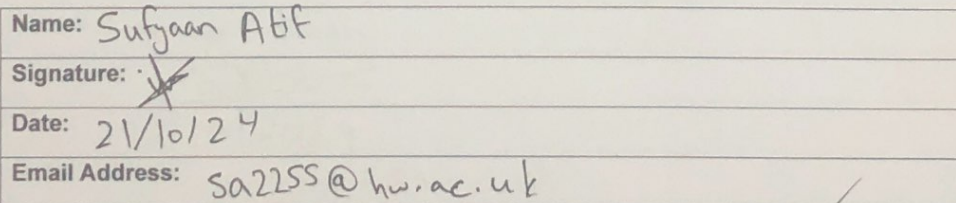 Name: Sufyaan Atif
Signature:
Date: 21/10/24
Email Address: sa2255@hw.ac.uk